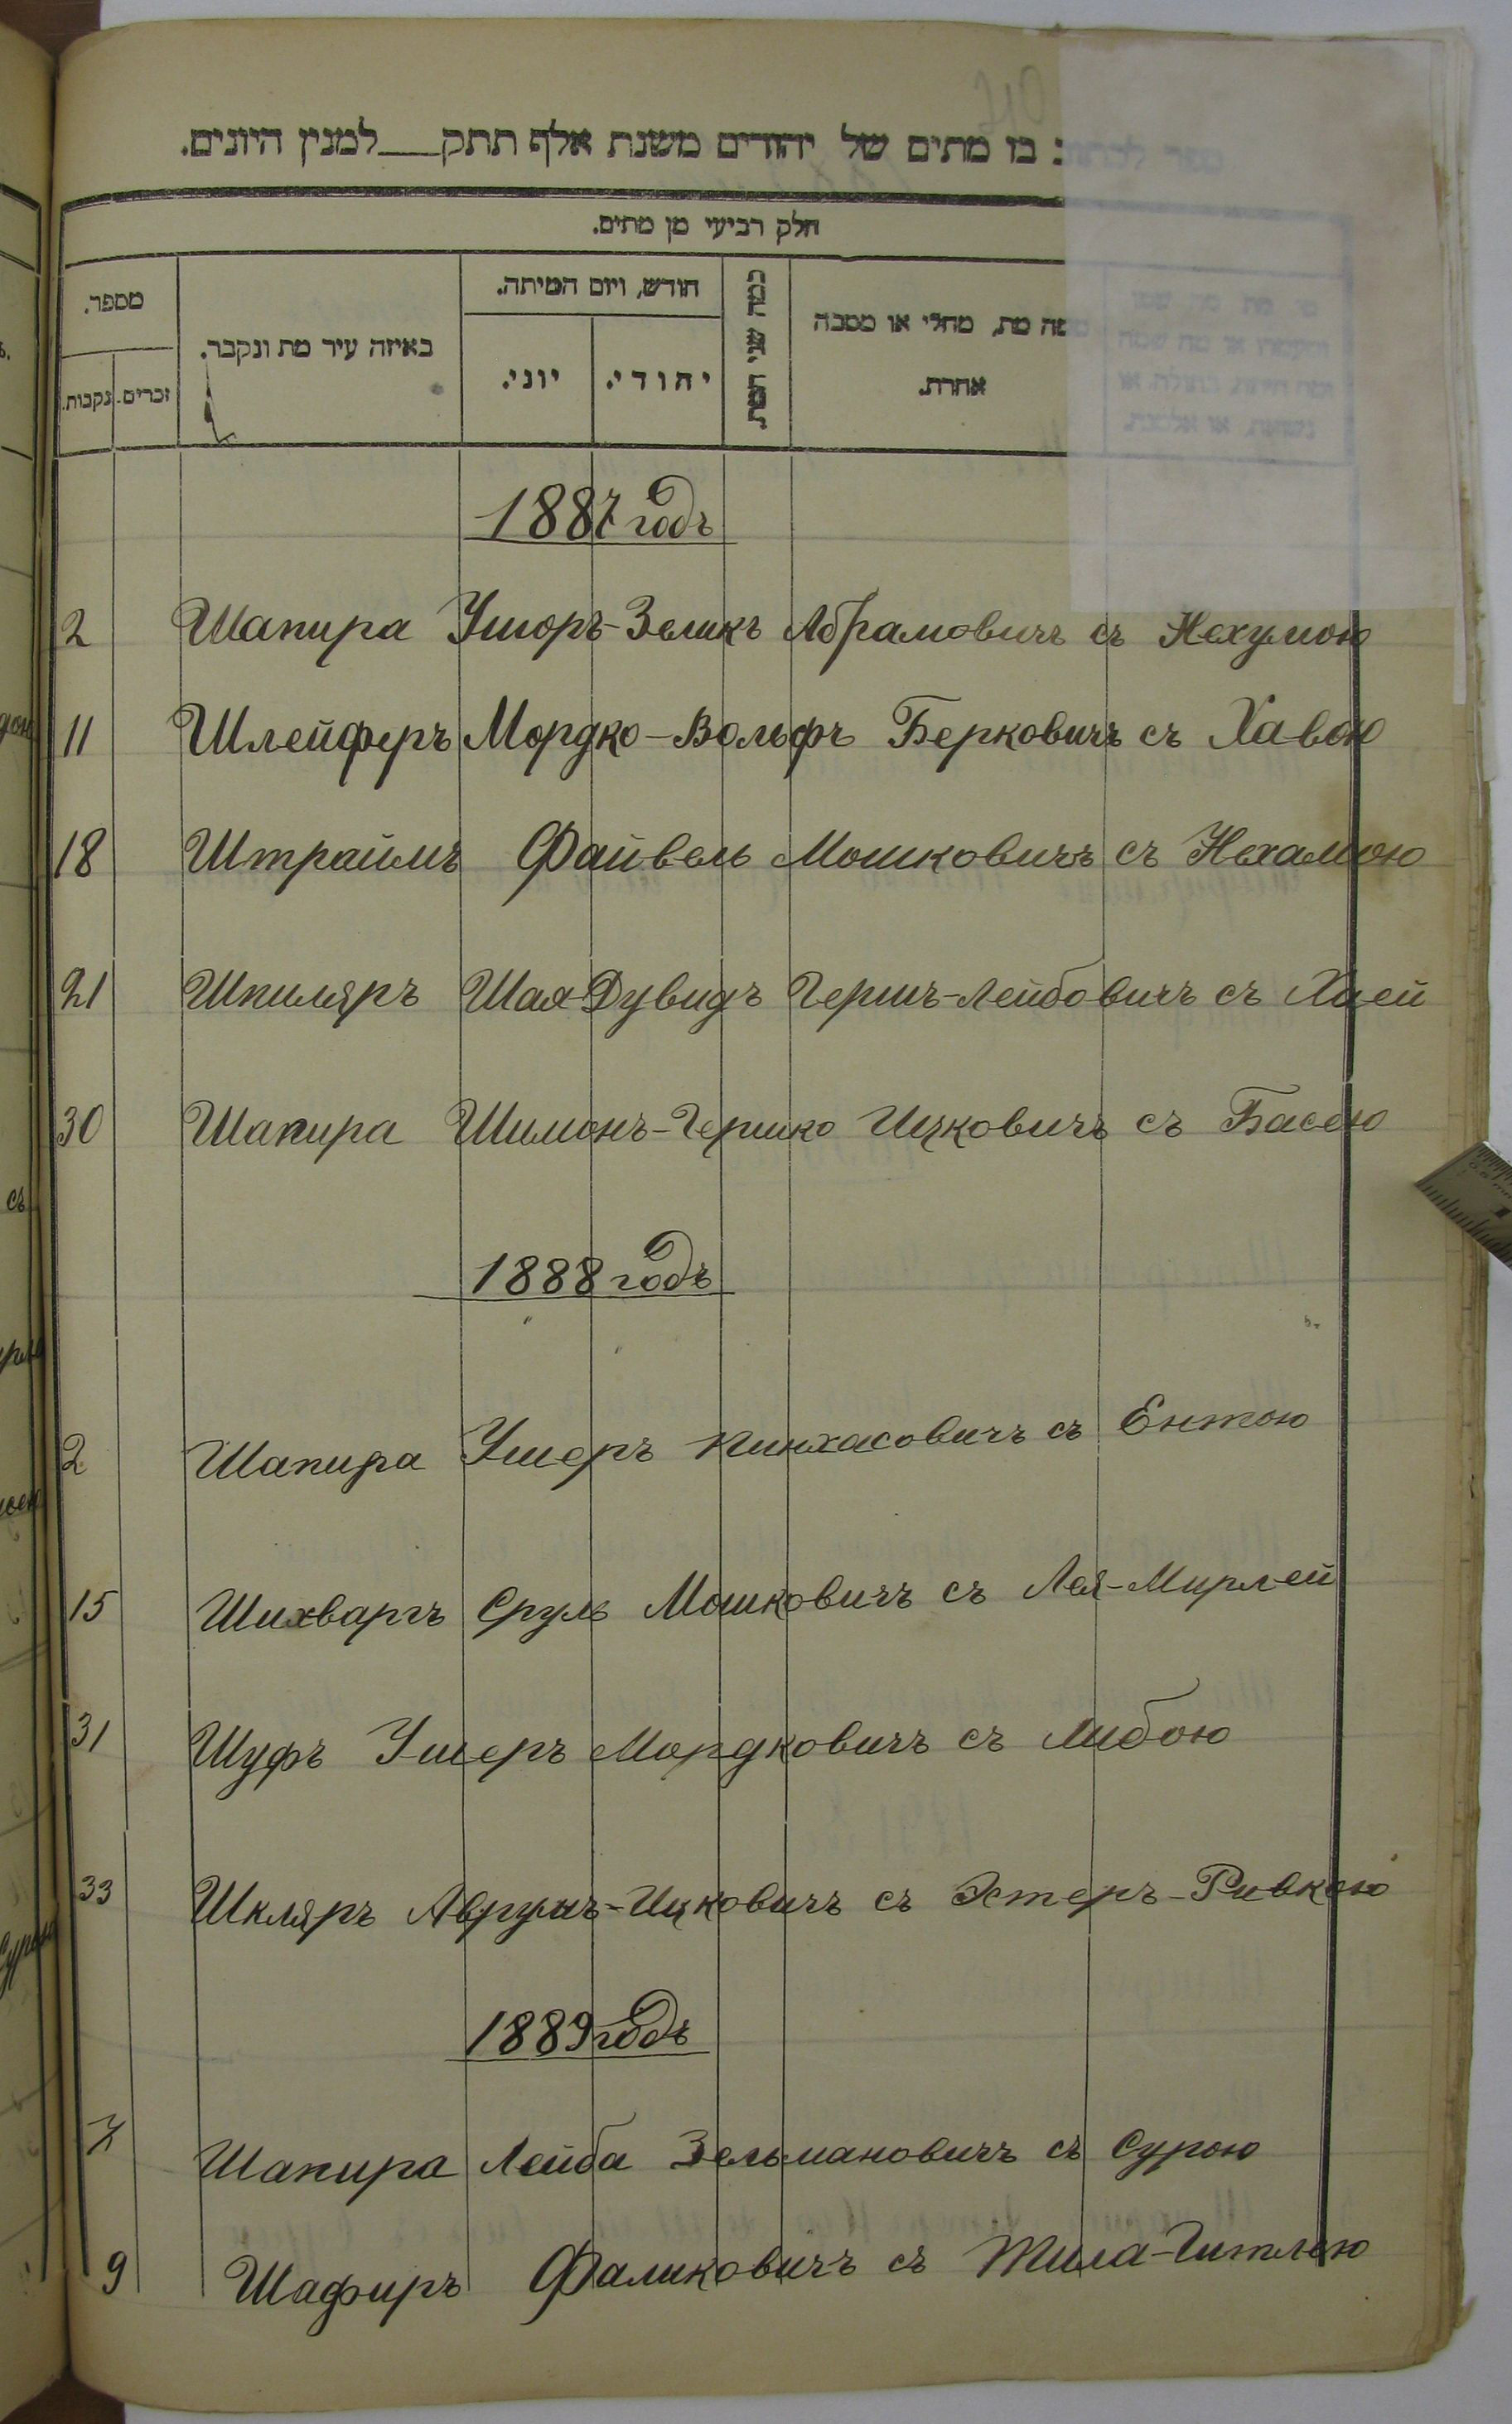 בו מתים של יהודים משנת אלף תתק___למנין היונים.
חלק רביעי מן מתים.
מספר.
נקבות.
זכרים.
באיזה עיר מת ונקבר.
חודש, ויום המיתה.
יוני.
יהודי.
כמה שני המת.
מפה מת, מחלי או מסבה
אחרת.
1887 годъ
2 Шапира Ушоръ-Зеликъ Абрамовичъ съ Нехумою
11 Шлейферъ Мордко-Вольфъ Берковичъ съ Хавою
18 Штраймъ Файвель Мошковичъ съ Нехамою
21 Шпиляръ Шая-Дувидъ Гершъ-Лейбовичъ съ Хаей
30 Шапира Шимонъ-Гершко Ицковичъ съ Басею
1888 годъ
2 Шапира Ушеръ Пинхасовичъ съ Ентою
15 Шихваргъ Сруль Мошковичъ съ Лея-Мирлей
31 Шуфъ Ушеръ Мордковичъ съ Либою
33 Шкляръ Аврумъ-Ицковичъ съ Эстеръ-Ривкою
1889 годъ
7 Шапира Лейба Зельмановичъ съ Сурою
9 Шафиръ Фаликовичъ съ Тила-Гитлею